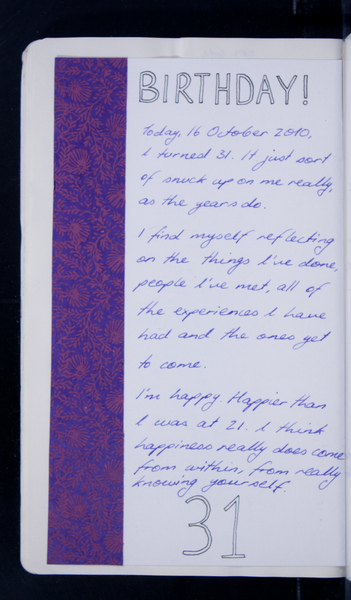 BIRTHDAY!
Today, 16 October 2010,
I turned 31. It just sort
of snuck up on me really,
as the years do.
I find myself reflecting
on the things I've done,
people I've met, all of
the experiences I have
had and the ones yet
to come.
I'm happy. Happier than
I was at 21. I think
happiness really does come
from within, from really
knowing yourself.
31